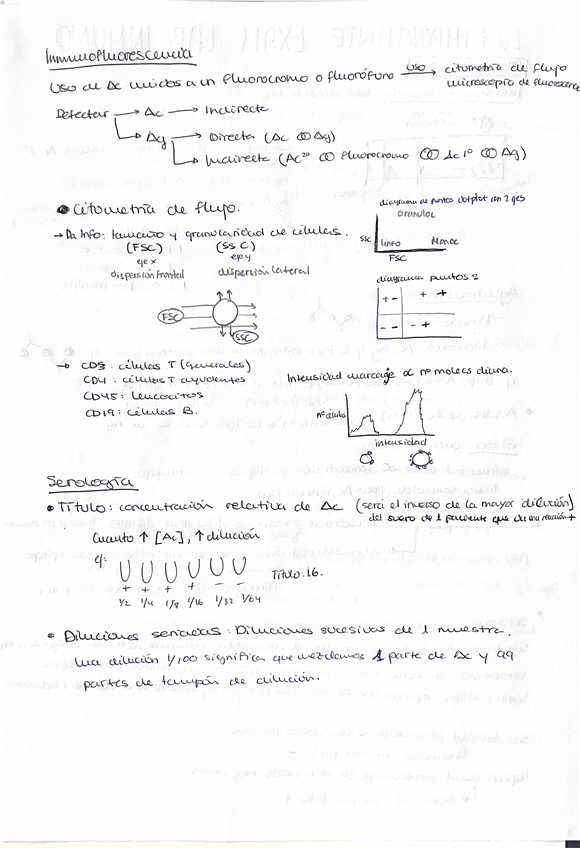 Inmunofluorescencia
Uso de Ac unidos a un fluorocromo o fluoróforo uso → citometría de flujo
microscopía de fluorescencia
Detectar → Ac → Indirecta
→ Ag → Directa (Ac Ag)
→ Indirecta (Ac 2º fluorocromo Ac 1º Ag)
• Citometría de flujo.
→ Da info: tamaño y granularidad de células.
(FSC) (SSC)
eje x eje y
dispersión frontal dispersión lateral
FSC
SSC
diagrama de puntos dotplot con 2 ejes
Granuloc
SSC Linfo Monoc
FSC
diagrama puntos 2
+ - + +
- - - +
→ CD3: células T (generales)
CD4: células T ayudantes
CD45: leucocitos
CD19: células B.
Intensidad marcaje α nº molécs diana.
nº células
intensidad
Serología
• Título: concentración relativa de Ac (será el inverso de la mayor dilución)
del suero de 1 paciente que da una reacción +
Cuanto ↑ [Ac], ↑ dilución
ej:
+ + + + - -
1/2 1/4 1/8 1/16 1/32 1/64
Título: 16.
• Diluciones seriadas: Diluciones sucesivas de 1 muestra.
Una dilución 1/100 significa que mezclamos 1 parte de Ac y 99
partes de tampón de dilución.